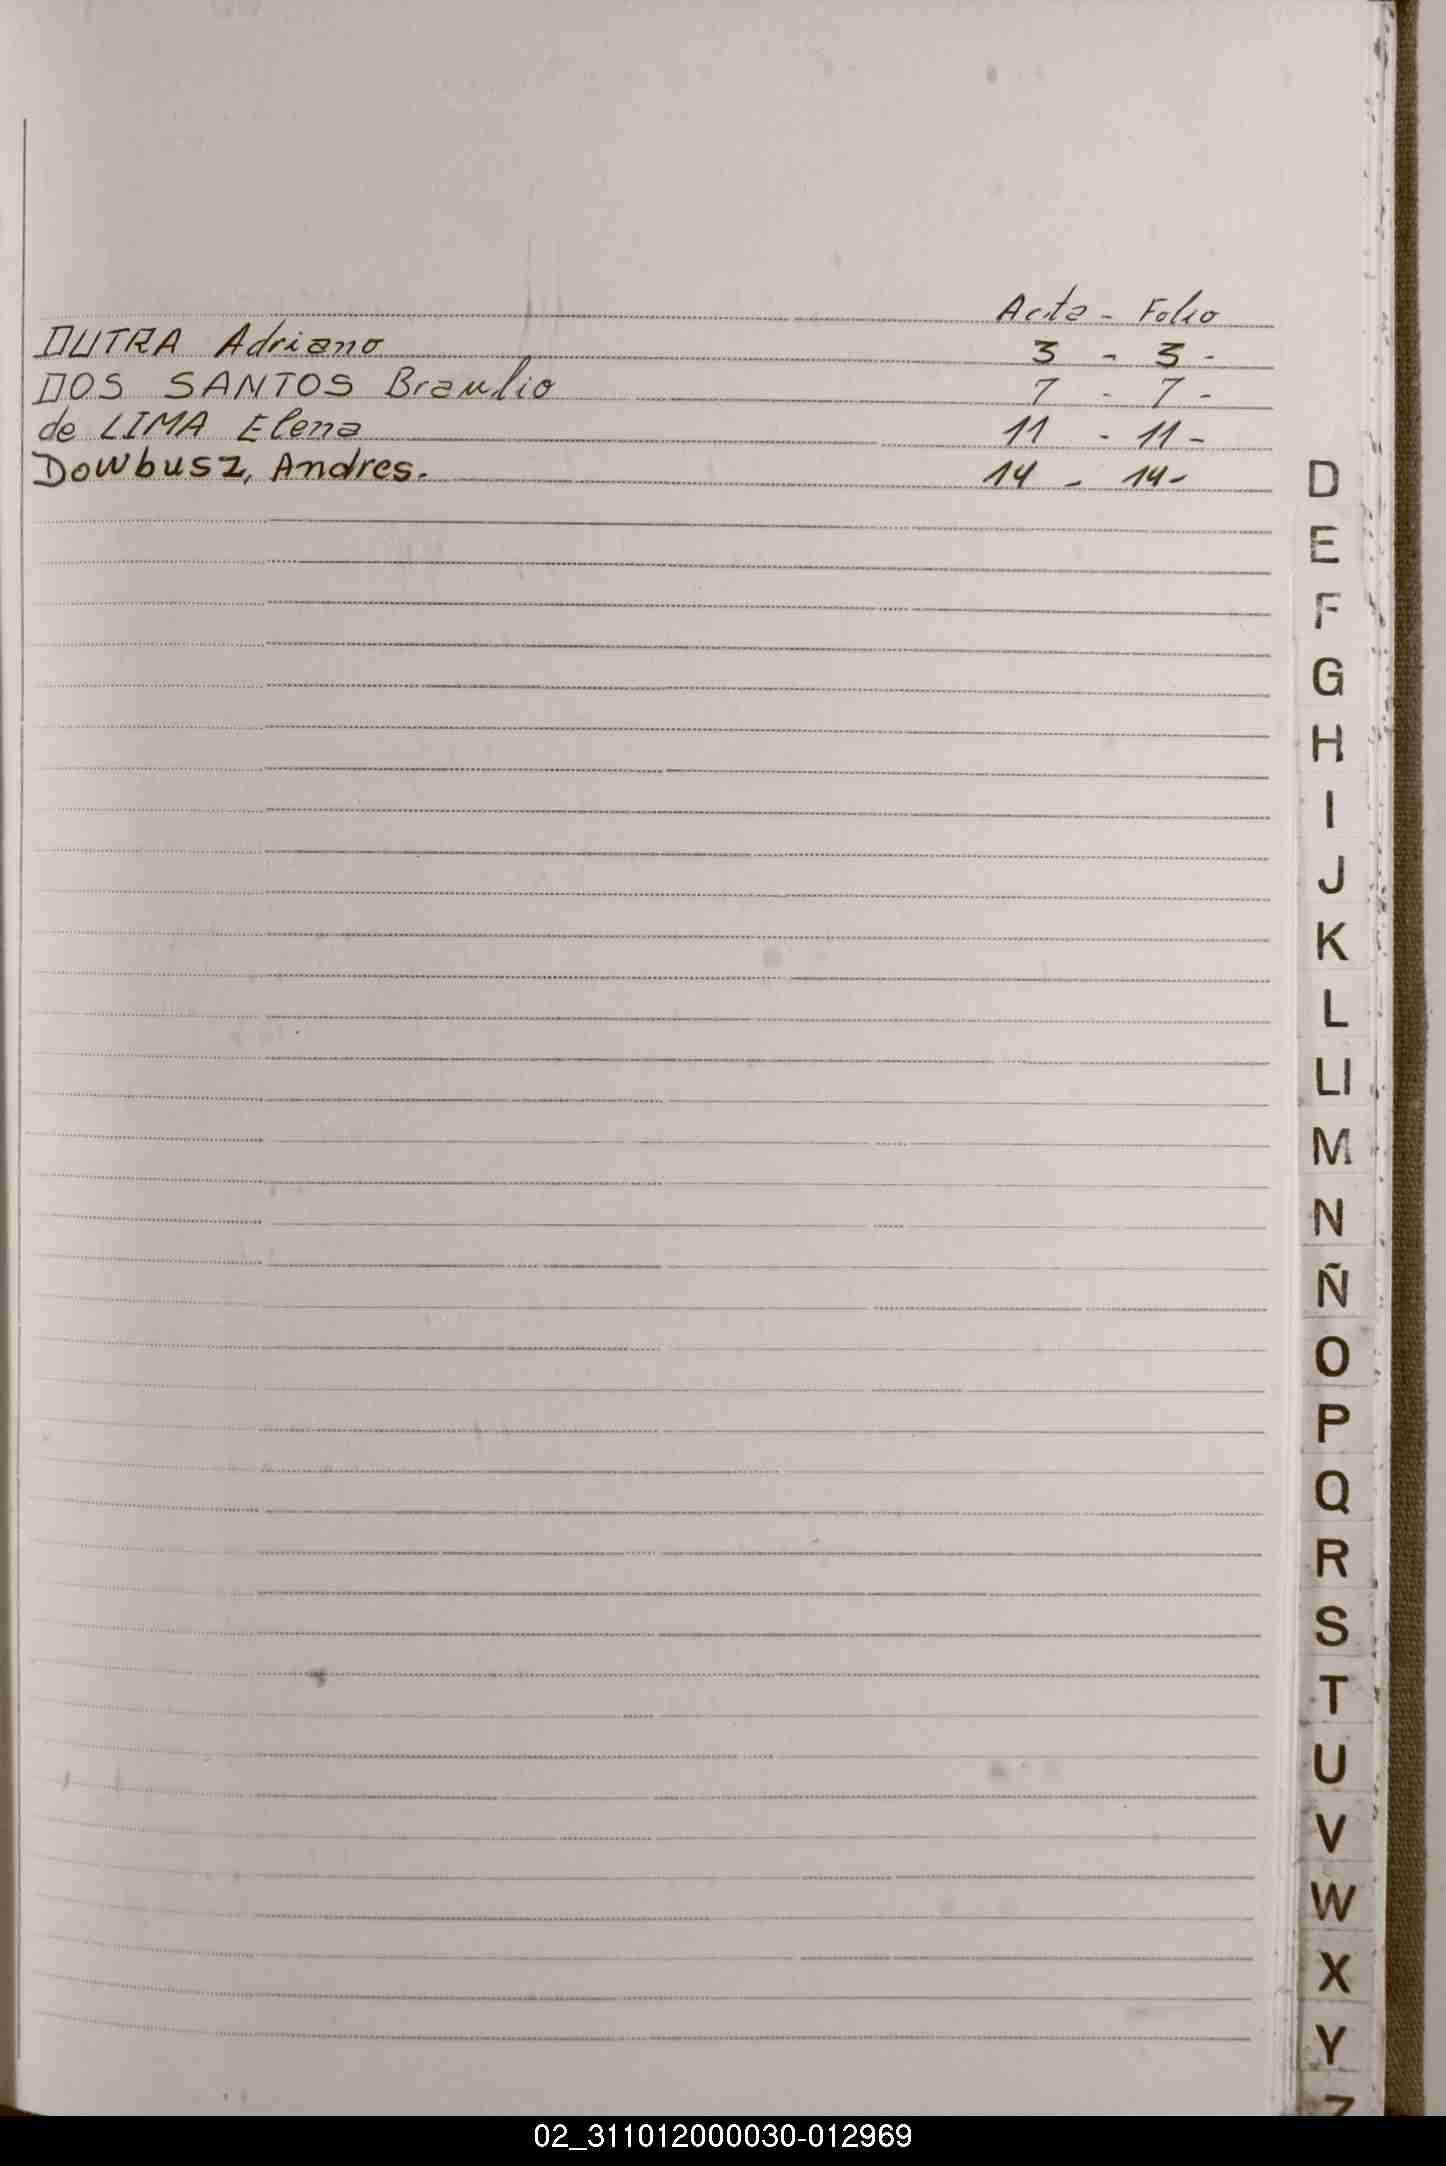 Acta - Folio
DUTRA Adriano 3 - 3 -
DOS SANTOS Braulio 7 - 7 -
de LIMA Elena 11 - 11 -
Dowbusz, Andres. 14 - 14 -
D
E
F
G
H
I
J
K
L
Ll
M
N
Ñ
O
P
Q
R
S
T
U
V
W
X
Y
Z
02_311012000030-012969